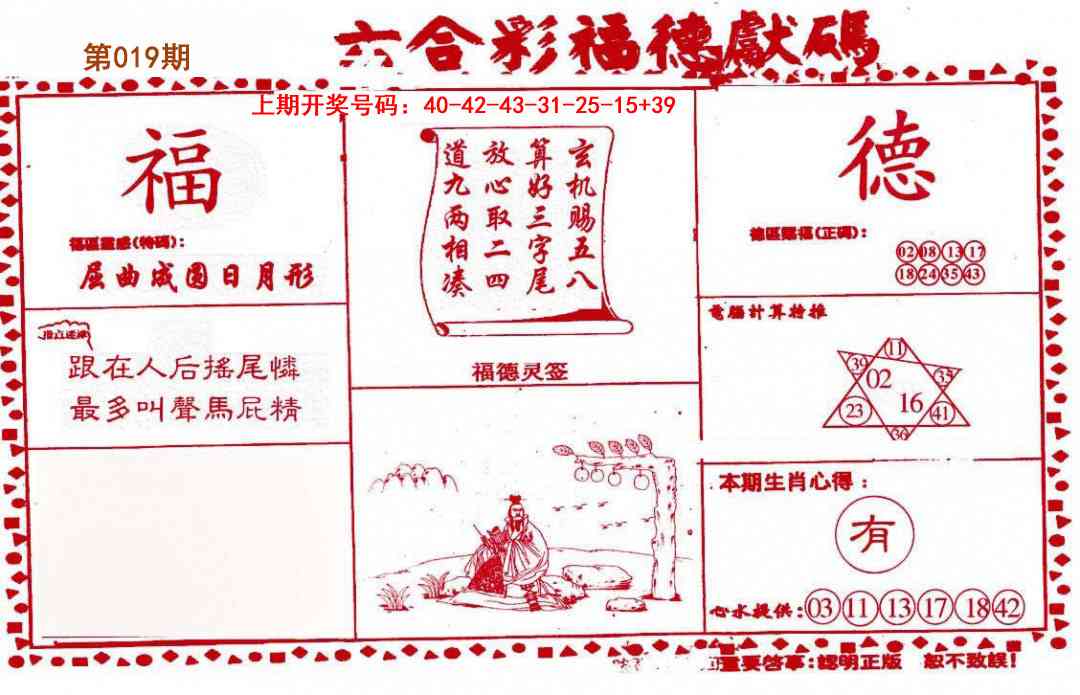 第019期
六合彩福德獻碼
上期开奖号码：40-42-43-31-25-15+39
福
福區靈感(特碼)：
屈曲成圆日月形
跟在人后搖尾憐
最多叫聲馬屁精
玄机赐五八
算好三字尾
放心取二四
道九两相凑
福德灵签
德
德區賜福(正碼)：
02 08 13 17
18 24 35 43
電腦計算特推
11
39 02 35
23 16 41
36
本期生肖心得：
有
心水提供:03 11 13 17 18 42
重要啓事:認明正版 恕不致誤!